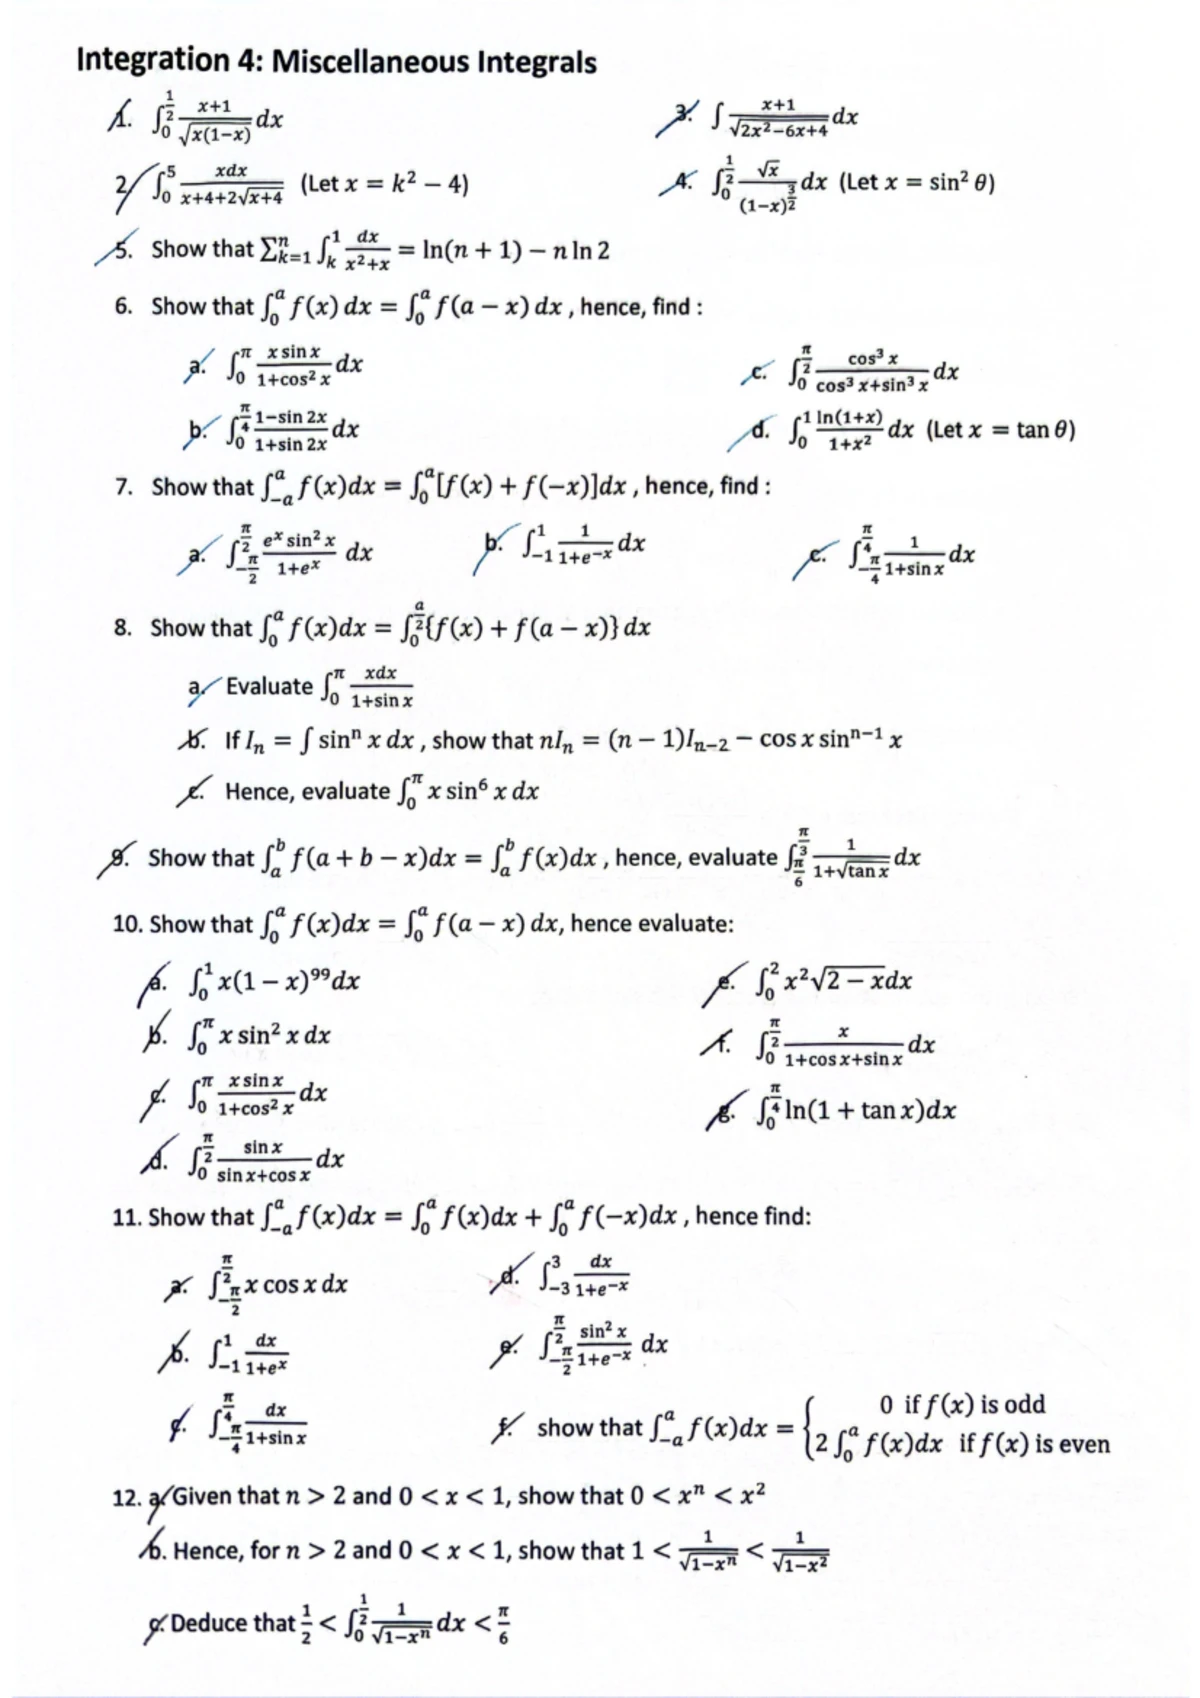 Integration 4: Miscellaneous Integrals
1. ∫₀^(1/2) (x+1)/√(x(1−x)) dx
3. ∫ (x+1)/√(2x²−6x+4) dx
2. ∫₀^5 xdx/(x+4+2√(x+4)) (Let x = k² − 4)
4. ∫₀^(1/2) √x/(1−x)^(3/2) dx (Let x = sin² θ)
5. Show that ∑_(k=1)^n ∫_k^1 dx/(x²+x) = ln(n + 1) − n ln 2
6. Show that ∫₀^a f(x) dx = ∫₀^a f(a − x) dx , hence, find :
a. ∫₀^π (x sin x)/(1+cos² x) dx
c. ∫₀^(π/2) cos³ x/(cos³ x+sin³ x) dx
b. ∫₀^(π/4) (1−sin 2x)/(1+sin 2x) dx
d. ∫₀^1 ln(1+x)/(1+x²) dx (Let x = tan θ)
7. Show that ∫_(−a)^a f(x)dx = ∫₀^a [f(x) + f(−x)]dx , hence, find :
a. ∫_(−π/2)^(π/2) (e^x sin² x)/(1+e^x) dx
b. ∫_(−1)^1 1/(1+e^(−x)) dx
c. ∫_(−π/4)^(π/4) 1/(1+sin x) dx
8. Show that ∫₀^a f(x)dx = ∫₀^(a/2) {f(x) + f(a − x)} dx
a. Evaluate ∫₀^π xdx/(1+sin x)
b. If Iₙ = ∫ sinⁿ x dx , show that nIₙ = (n − 1)Iₙ₋₂ − cos x sinⁿ⁻¹ x
c. Hence, evaluate ∫₀^π x sin⁶ x dx
9. Show that ∫_a^b f(a + b − x)dx = ∫_a^b f(x)dx , hence, evaluate ∫_(π/6)^(π/3) 1/(1+√tan x) dx
10. Show that ∫₀^a f(x)dx = ∫₀^a f(a − x) dx, hence evaluate:
a. ∫₀^1 x(1 − x)⁹⁹dx
e. ∫₀^2 x²√(2 − x)dx
b. ∫₀^π x sin² x dx
f. ∫₀^(π/2) x/(1+cos x+sin x) dx
c. ∫₀^π (x sin x)/(1+cos² x) dx
g. ∫₀^(π/4) ln(1 + tan x)dx
d. ∫₀^(π/2) sin x/(sin x+cos x) dx
11. Show that ∫_(−a)^a f(x)dx = ∫₀^a f(x)dx + ∫₀^a f(−x)dx , hence find:
a. ∫_(−π/2)^(π/2) x cos x dx
d. ∫_(−3)^3 dx/(1+e^(−x))
b. ∫_(−1)^1 dx/(1+e^x)
e. ∫_(−π/2)^(π/2) sin² x/(1+e^(−x)) dx
c. ∫_(−π/4)^(π/4) dx/(1+sin x)
f. show that ∫_(−a)^a f(x)dx = { 0 if f(x) is odd
2 ∫₀^a f(x)dx if f(x) is even
12. a. Given that n > 2 and 0 < x < 1, show that 0 < xⁿ < x²
b. Hence, for n > 2 and 0 < x < 1, show that 1 < 1/√(1−xⁿ) < 1/√(1−x²)
c. Deduce that 1/2 < ∫₀^(1/2) 1/√(1−xⁿ) dx < π/6